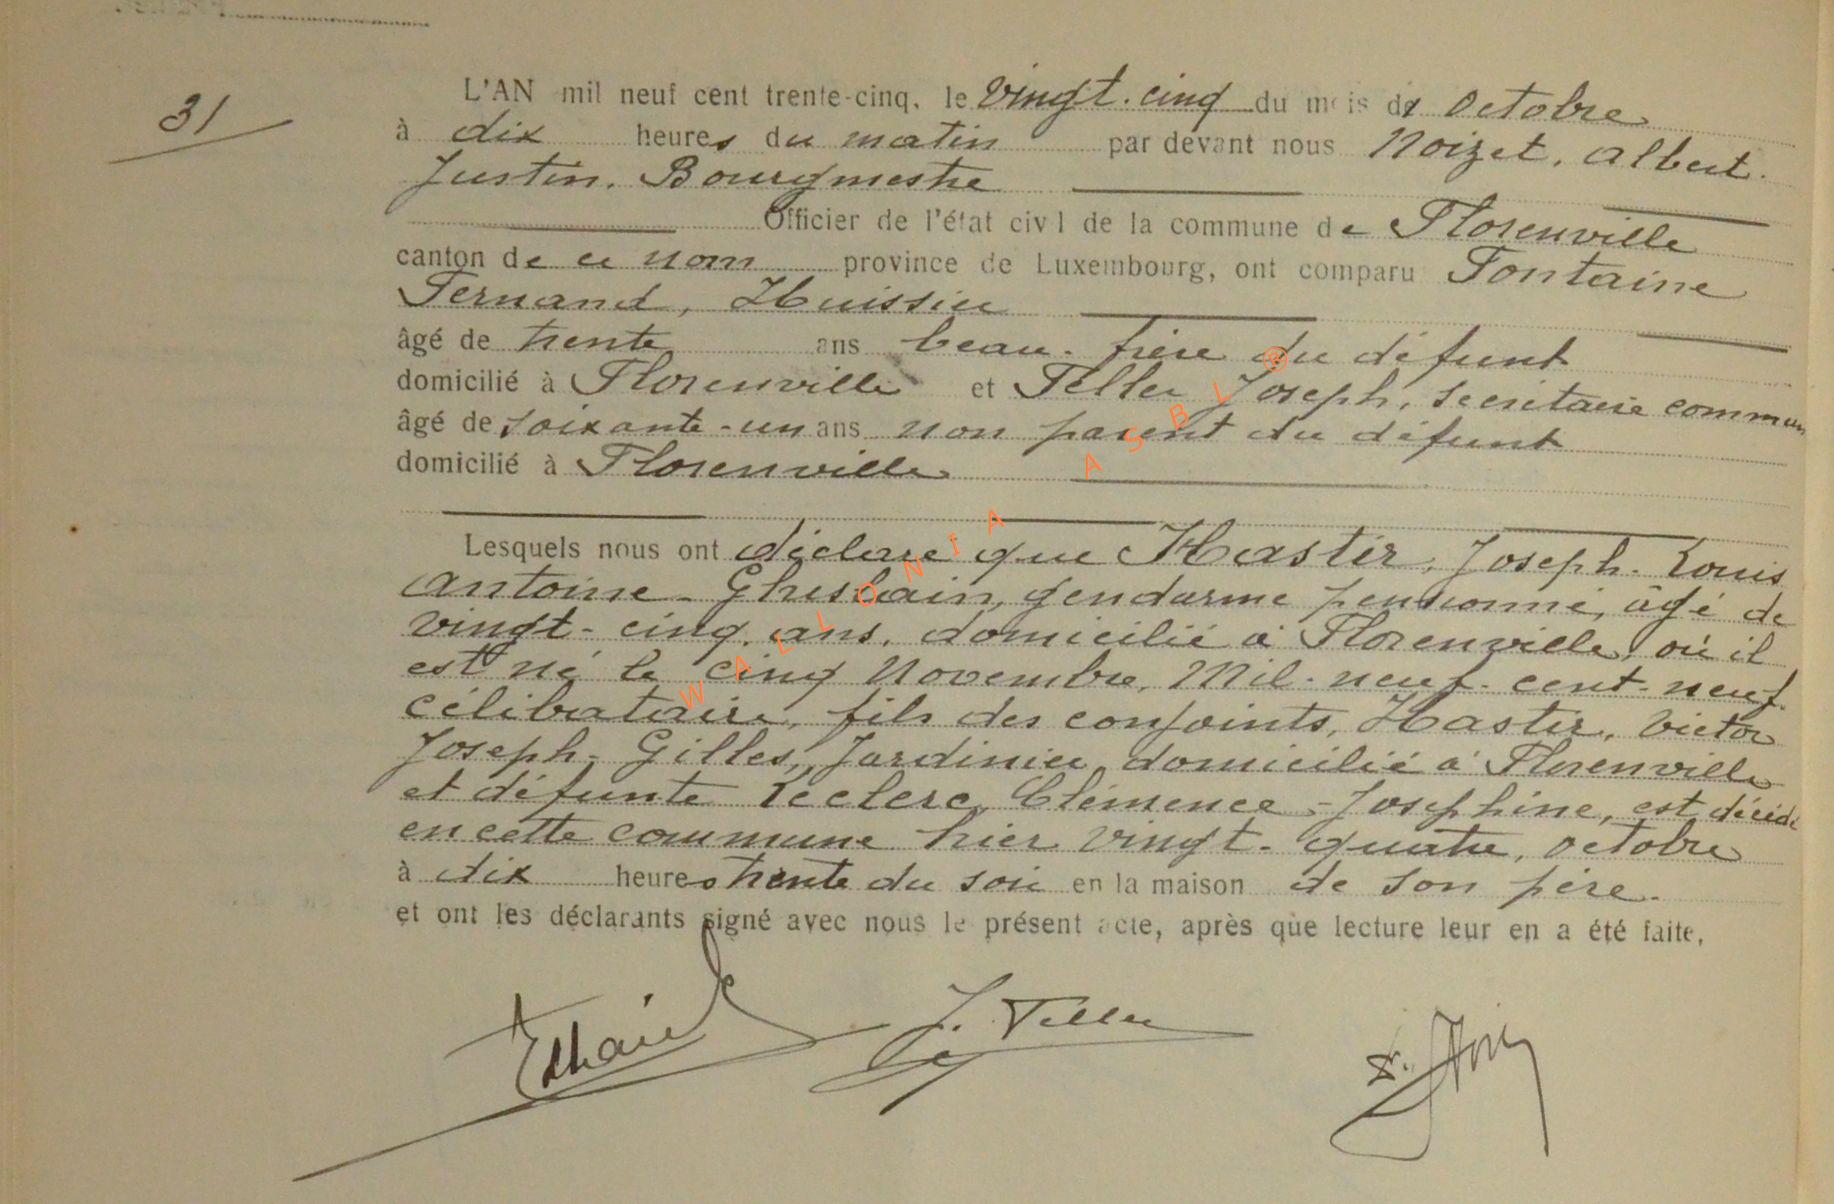 31
L'AN mil neuf cent trente-cinq, le vingt-cinq du mois de Octobre
à dix heures du matin par devant nous Noizet, Albert
Justin, Bourgmestre
Officier de l'état civil de la commune de Florenville
canton de ce nom province de Luxembourg, ont comparu Fontaine
Fernand, Huissier
âgé de trente ans beau-frère du défunt
domicilié à Florenville et Feller Joseph, secrétaire commun
âgé de soixante-un ans non parent du défunt
domicilié à Florenville
Lesquels nous ont déclaré que Hastir, Joseph-Louis
Antoine-Ghislain, gendarme pensionné, âgé de
vingt-cinq ans, domicilié à Florenville, où il
est né le cinq Novembre, Mil-neuf-cent-neuf
célibataire, fils des conjoints, Hastir, Victor
Joseph-Gilles, Jardinier domicilié à Florenville
et défunte Leclerc Clémence-Joséphine, est décédé
en cette commune hier vingt-quatre, Octobre
à dix heures trente du soir en la maison de son père.
et ont les déclarants signé avec nous le présent acte, après que lecture leur en a été faite,
J. Feller
WALLONIA ASBL ®